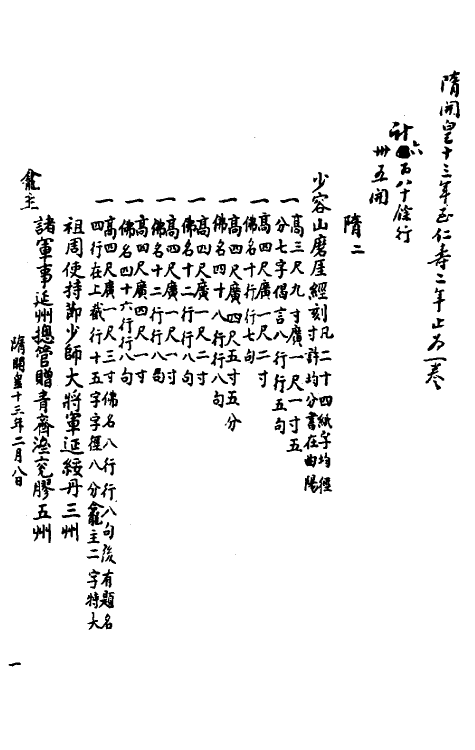 隋開皇十三年至仁壽二年止為一卷
計六百八十餘行
卅五開
隋二
少容山磨厓經刻凡二十四紙字均徑寸許均分書在曲陽
一高三尺九寸廣一尺一寸五分七字偈言八行行五句
一高四尺廣一尺二寸佛名十行行七句
一高四尺廣四尺五寸五分佛名四十八行行八句
一高四尺廣一尺二寸佛名十二行行八句
一高四尺廣一尺一寸佛名十二行行八句
一高四尺廣四尺一寸佛名四十六行行八句
一高四尺廣一尺三寸佛名八行行八句後有題名四行在上截行十五字字徑八分龕主二字特大
祖周使持節少師大將軍延綏丹三州
諸軍事延州總管贈青齊滄兗膠五州
龕主
隋開皇十三年二月八日
一